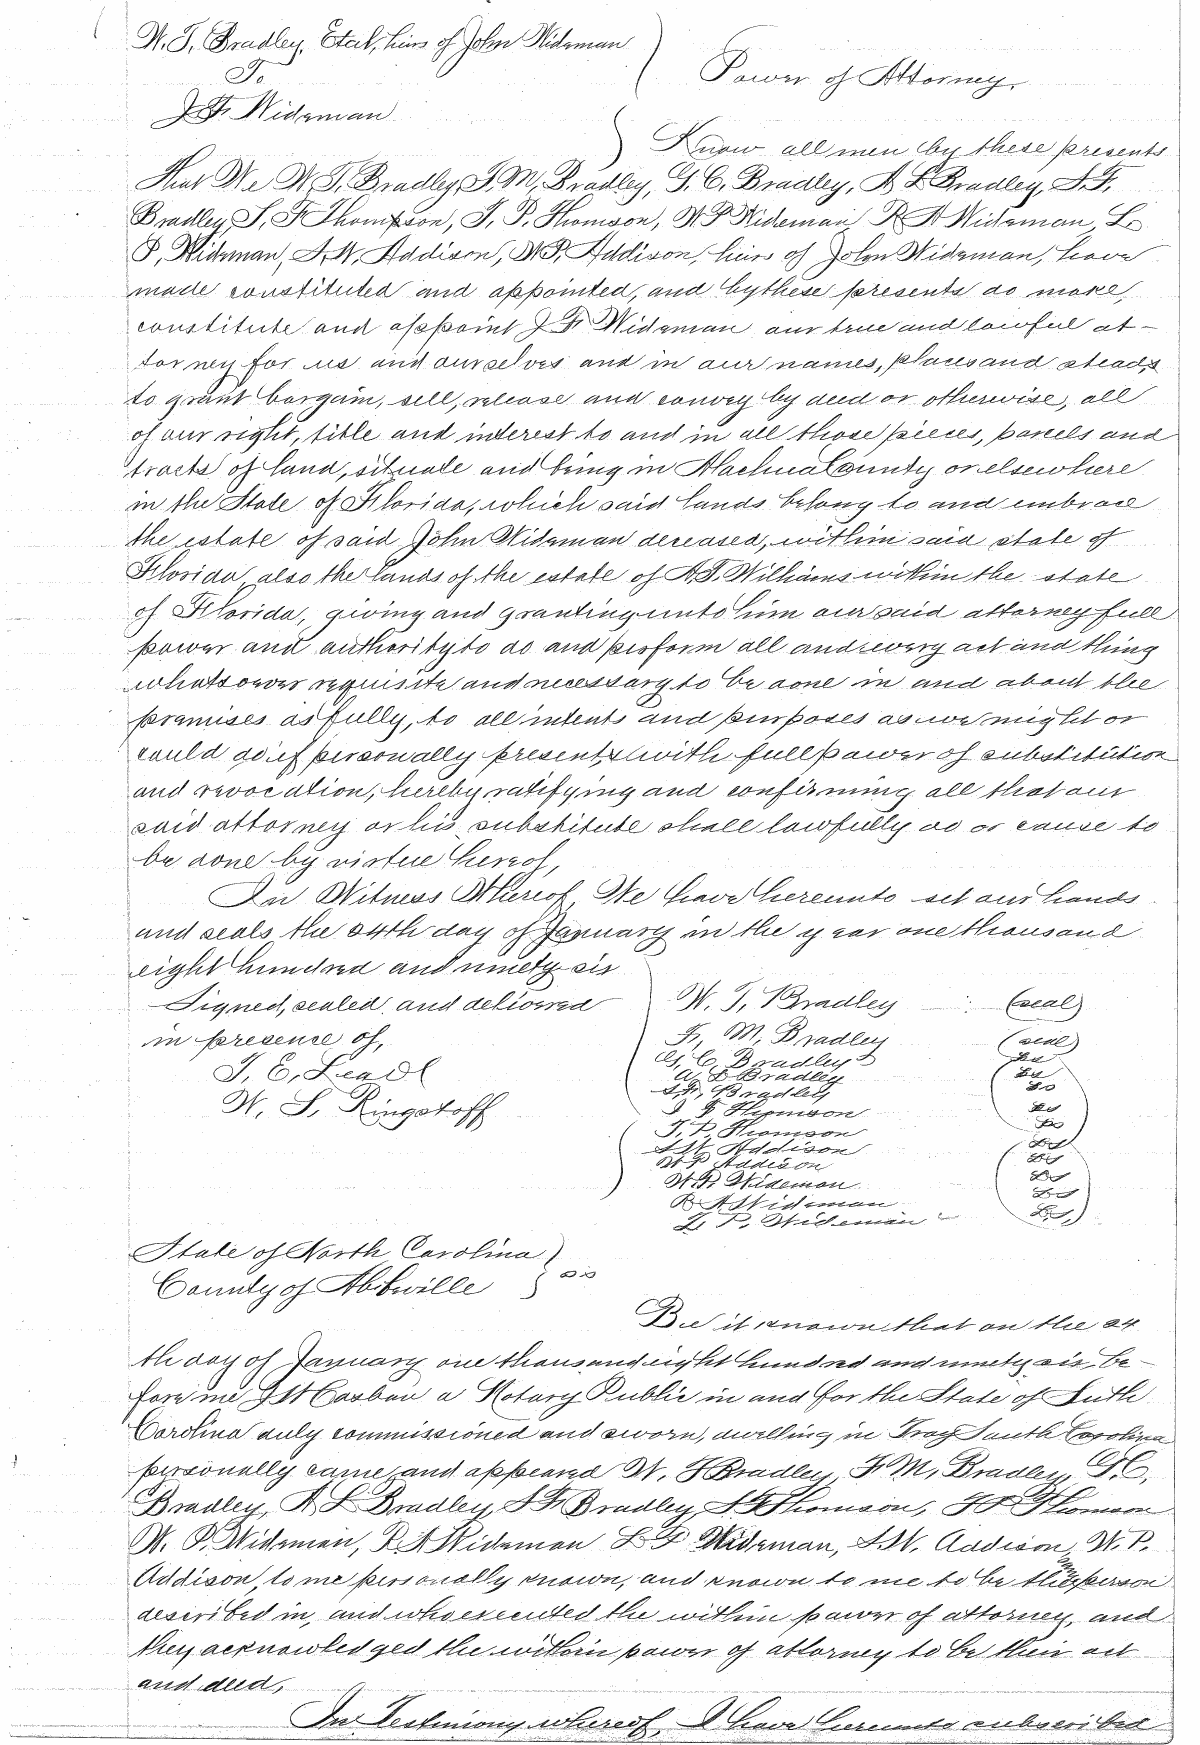 W. T. Bradley, Etal, heirs of John Wideman
To
J. F. Wideman
Power of Attorney.
Know all men by these presents
That We W. T. Bradley, F. M. Bradley, G. C. Bradley, A L Bradley, S. F.
Bradley, S, F Thompson, J, P, Thomson, W P Wideman R A Wideman L.
P, Wideman, S. W. Addison, W. P. Addison, heirs of John Wideman, have
made constituted and appointed, and by these presents do make,
constitute and appoint J F Wideman our true and lawful at-
torney for us and ourselves and in our names, places and steads
to grant bargain, sell, release and convey by deed or otherwise, all
of our right, title and interest to and in all those pieces, parcels and
tracts of land, situate and being in Alachua County or elsewhere
in the State of Florida, which said lands belong to and embrace
the estate of said John Wideman deceased, within said state of
Florida, also the lands of the estate of A. T. Williams within the state
of Florida, giving and granting unto him our said attorney full
power and authority to do and perform all and every act and thing
whatsoever requisite and necessary to be done in and about the
premises as fully, to all intents and purposes as we might or
could do if personally present, with full power of substitution
and revocation, hereby ratifying and confirming all that our
said attorney or his substitute shall lawfully do or cause to
be done by virtue hereof,
In Witness Whereof, We have hereunto set our hands
and seals the 24th day of January in the year one thousand
eight hundred and ninety six
Signed, sealed and delivered
in presence of,
J. E. Leadl
W. S. Ringstoff
W. T, Bradley (seal)
F, M, Bradley (seal)
G, C, Bradley
A L Bradley
S. F, Bradley
S F Thomson
J. P, Thomson
S W Addison
W P Addison
W. P. Wideman
R A Wideman
L P. Wideman
State of North Carolina
County of Abbeville ss
Be it known that on the 24
th day of January one thousand eight hundred and ninety six, be-
fore me a Notary Public in and for the State of South
Carolina duly commissioned and sworn, dwelling in Troy South Carolina
personally came and appeared W. T Bradley, F. M, Bradley, G. C,
Bradley, A L Bradley, S F Bradley, S F Thomson, J P Thomson
W. P. Wideman, R A Wideman L P Wideman, S. W. Addison, W. P.
Addison, to me personally known, and known to me to be the person
described in, and who executed the within power of attorney, and
they acknowledged the within power of attorney to be their act
and deed,
In Testimony whereof, I have hereunto subscribed